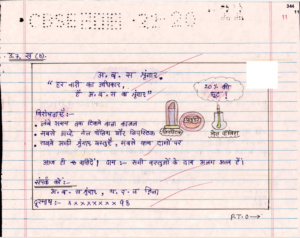 CBSE
344
11
अ. ब. स श्रृंगार.
" हर नारी का अधिकार,
है अ. ब. स श्रृंगार "
20% की
छूट !
विशेषताएँ :-
लंबे समय तक टिकने वाला काजल
सबसे अच्छे, नेल पॉलिश और लिपस्टिक
सबसे अच्छी श्रृंगार वस्तुएँ, सबसे कम दामों पर
नेल पॉलिश
आज ही खरीदें ! दाम :- सभी वस्तुओं के दाम अलग अलग हैं।
संपर्क करें :-
अ. ब. स श्रृंगार,
दूरभाष :- xxxxxxxx98
P.T.O →